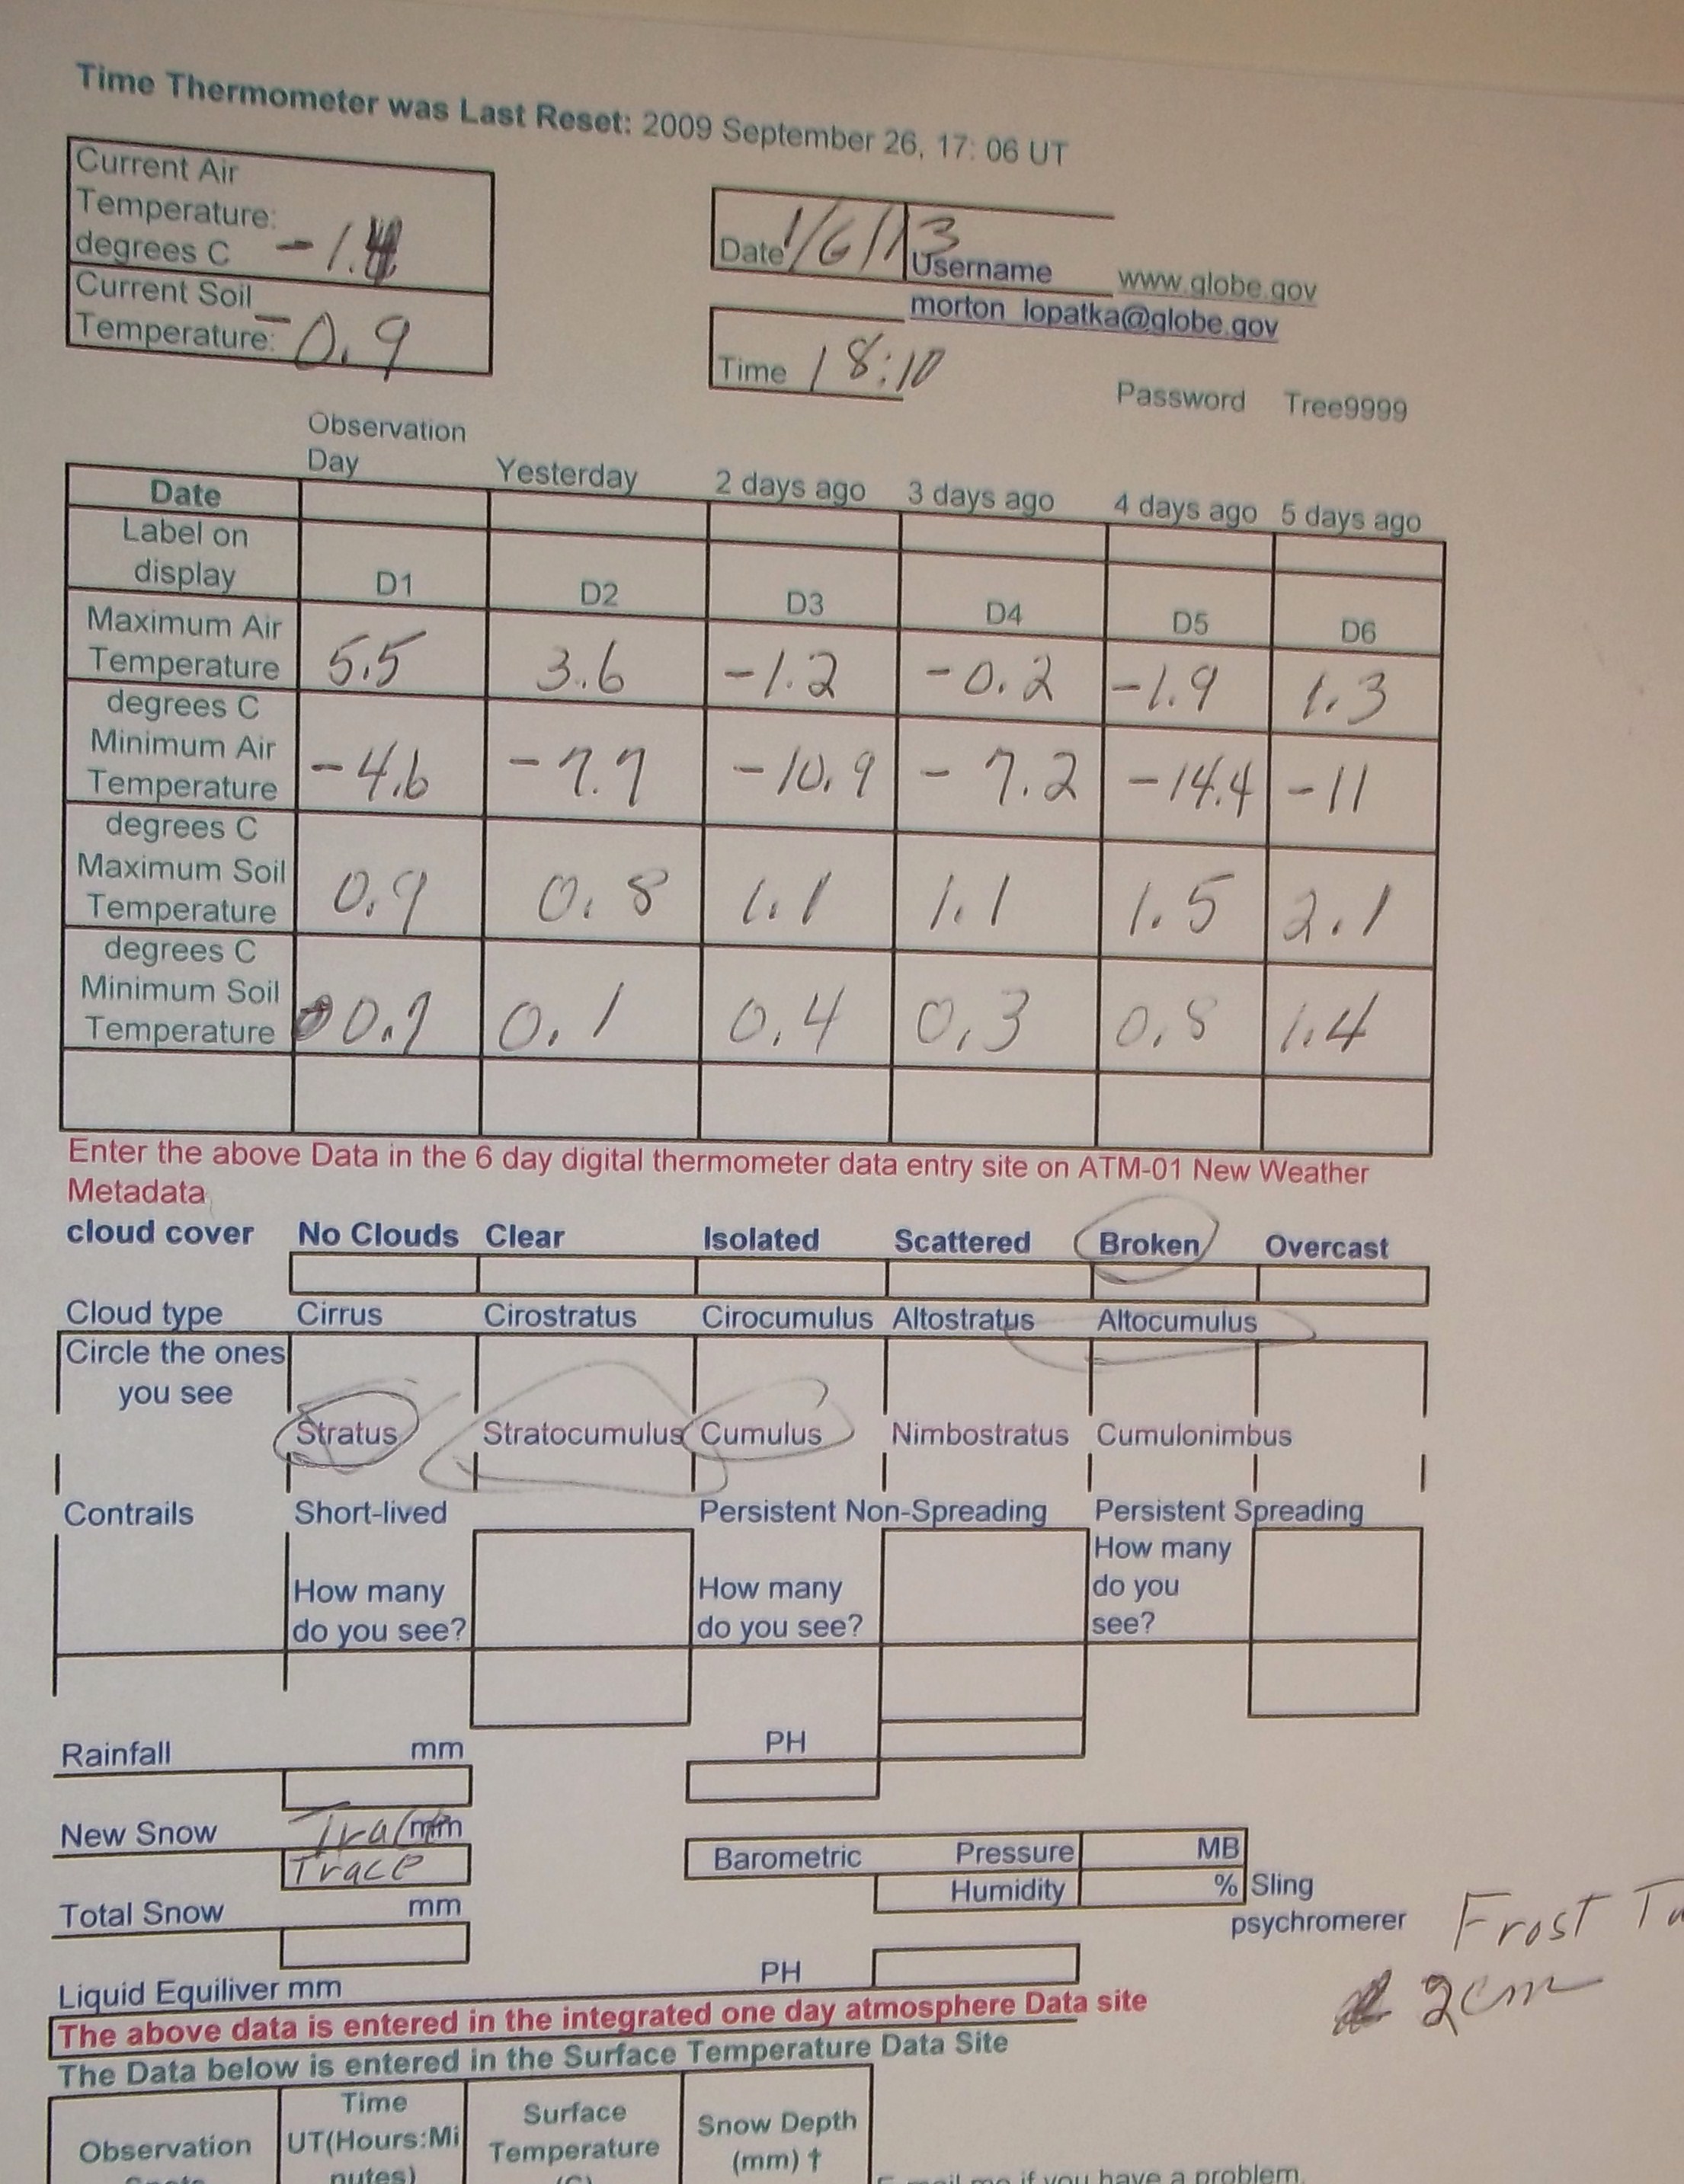 Time Thermometer was Last Reset: 2009 September 26, 17: 06 UT
Current Air
Temperature:
degrees C -1.4
Current Soil
Temperature: -0.9
Date 1/6/13 Username www.globe.gov
morton_lopatka@globe.gov
Time 18:10
Password Tree9999
Observation
Day Yesterday 2 days ago 3 days ago 4 days ago 5 days ago
Date
Label on
display D1 D2 D3 D4 D5 D6
Maximum Air
Temperature 5.5 3.6 -1.2 -0.2 -1.9 1.3
degrees C
Minimum Air
Temperature -4.6 -7.7 -10.9 -7.2 -14.4 -11
degrees C
Maximum Soil
Temperature 0.9 0.8 1.1 1.1 1.5 2.1
degrees C
Minimum Soil
Temperature 0.1 0.4 0.3 0.8 1.4
Enter the above Data in the 6 day digital thermometer data entry site on ATM-01 New Weather
Metadata
cloud cover No Clouds Clear Isolated Scattered Broken Overcast
Cloud type Cirrus Cirostratus Cirocumulus Altostratus Altocumulus
Circle the ones
you see
Stratus Stratocumulus Cumulus Nimbostratus Cumulonimbus
Contrails Short-lived Persistent Non-Spreading Persistent Spreading
How many
do you see?
How many
do you see?
How many
do you
see?
Rainfall mm PH
New Snow mm
Trace
Barometric Pressure MB
Humidity % Sling
psychromerer
Total Snow mm
Frost
2cm
Liquid Equiliver mm PH
The above data is entered in the integrated one day atmosphere Data site
The Data below is entered in the Surface Temperature Data Site
Observation
Time
UT(Hours:Mi
nutes)
Surface
Temperature
(C)
Snow Depth
(mm) †
if you have a problem.